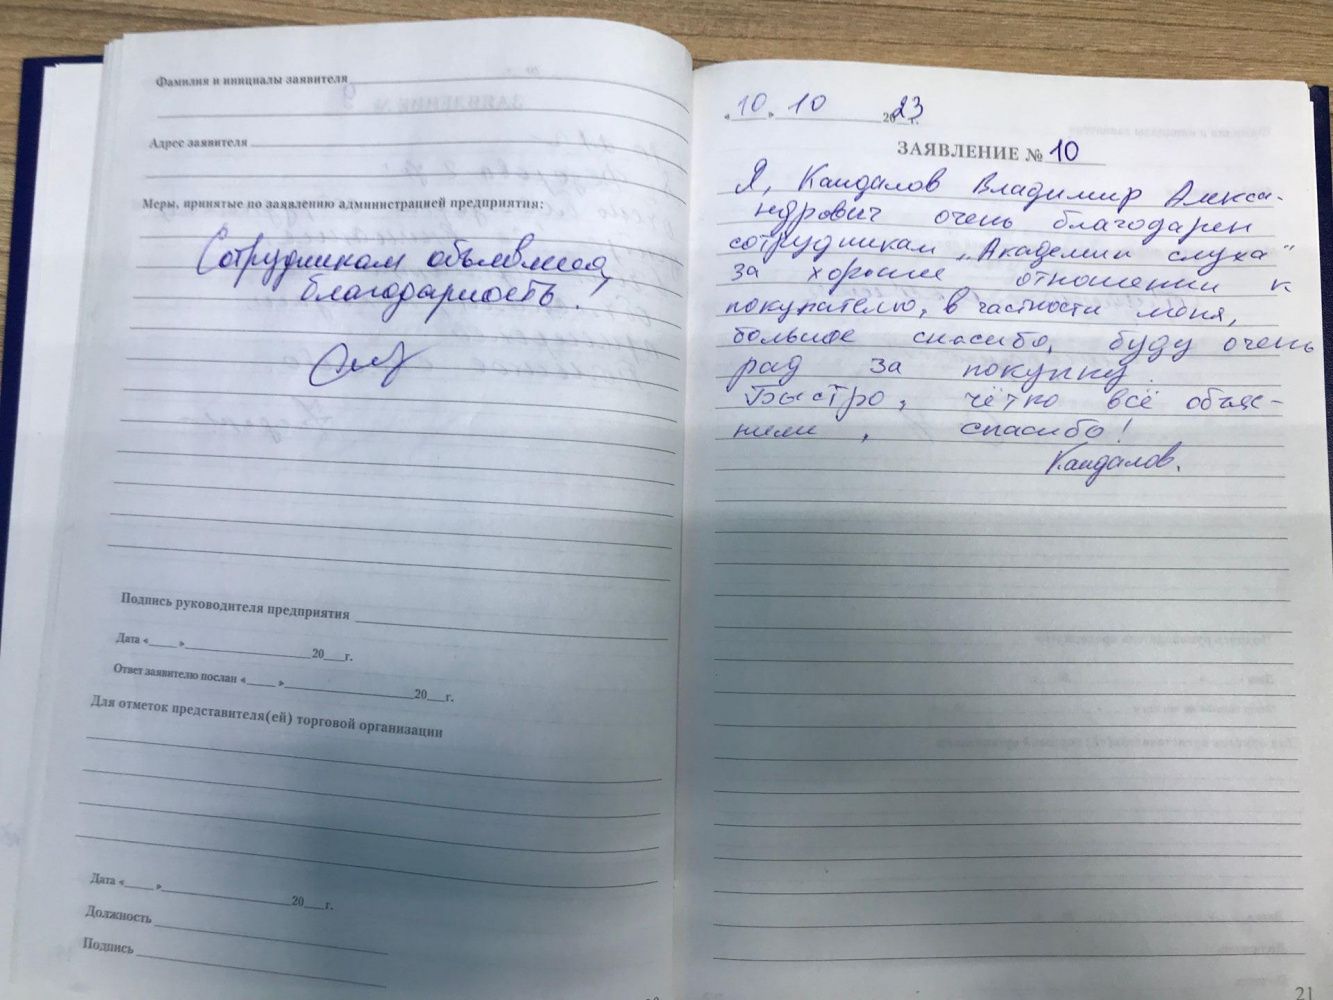 Фамилия и инициалы заявителя
Адрес заявителя
Меры, принятые по заявлению администрацией предприятия:
Сотрудникам объявлена
благодарность!
Подпись руководителя предприятия
Дата «____» ____ 20__г.
Ответ заявителю послан «____» ____ 20__г.
Для отметок представителя(ей) торговой организации
Дата «____» ____ 20__г.
Должность
Подпись
«10» 10 2023 г.
ЗАЯВЛЕНИЕ № 10
Я, Кандалов Владимир Алекса-
ндрович очень благодарен
сотрудникам „Академии слуха"
за хорошие отношении к
покупателю, в частности меня,
большое спасибо, буду очень
рад за покупку.
Быстро, чётко всё объяс-
нили, спасибо!
Кандалов.
21